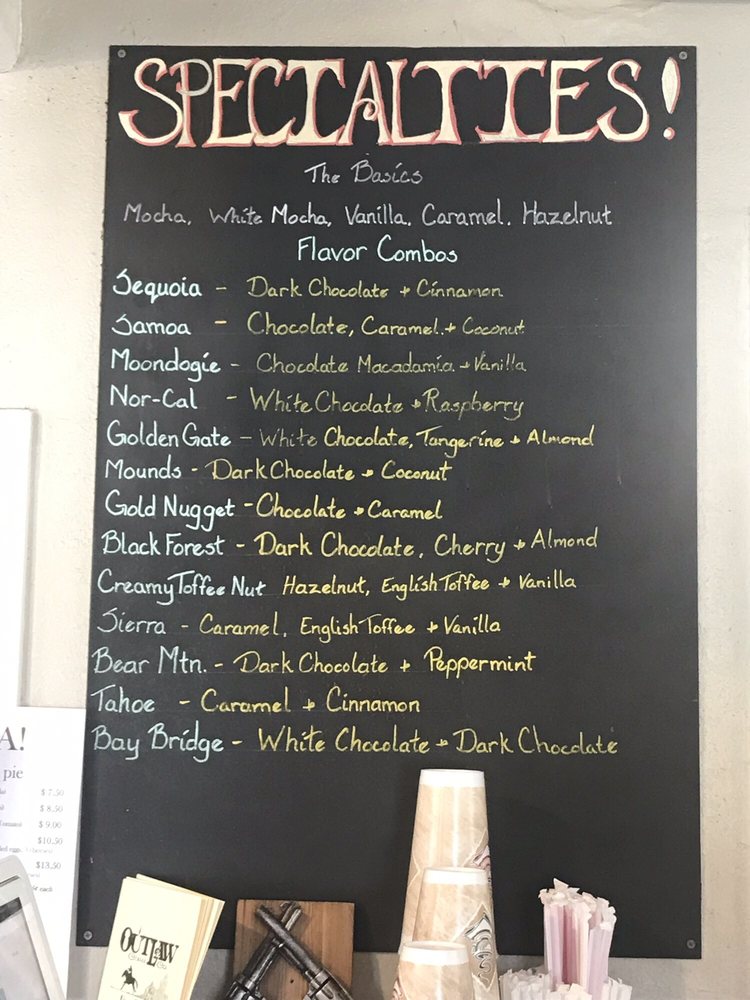 SPECIALTIES!
The Basics
Mocha, White Mocha, Vanilla, Caramel, Hazelnut
Flavor Combos
Sequoia - Dark Chocolate + Cinnamon
Samoa - Chocolate, Caramel + Coconut
Moondogie - Chocolate Macadamia + Vanilla
Nor-Cal - White Chocolate + Raspberry
Golden Gate - White Chocolate, Tangerine + Almond
Mounds - Dark Chocolate + Coconut
Gold Nugget - Chocolate + Caramel
Black Forest - Dark Chocolate, Cherry + Almond
Creamy Toffee Nut Hazelnut, English Toffee + Vanilla
Sierra - Caramel, English Toffee + Vanilla
Bear Mtn. - Dark Chocolate + Peppermint
Tahoe - Caramel + Cinnamon
Bay Bridge - White Chocolate + Dark Chocolate
A!
pie
$7.50
$8.50
$9.00
$10.50
$13.50
each
OUTLAW